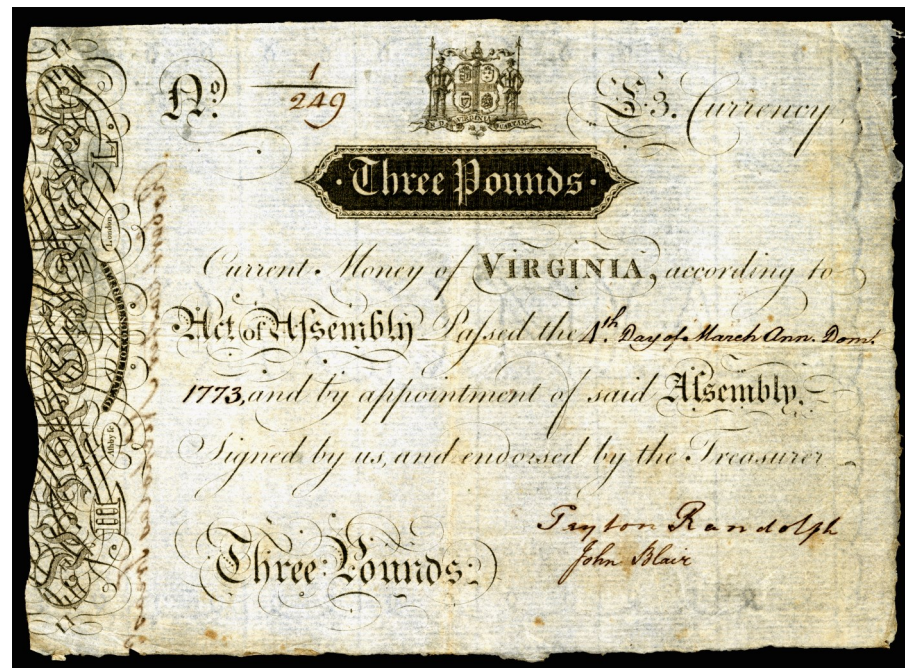 No. 1/249
£3. Currency
Three Pounds
Current Money of VIRGINIA, according to
Act of Assembly Passed the 4th. Day of March Ann. Dom.
1773, and by appointment of said Assembly.
Signed by us, and endorsed by the Treasurer
Peyton Randolph
John Blair
Three Pounds:
London
Ashby